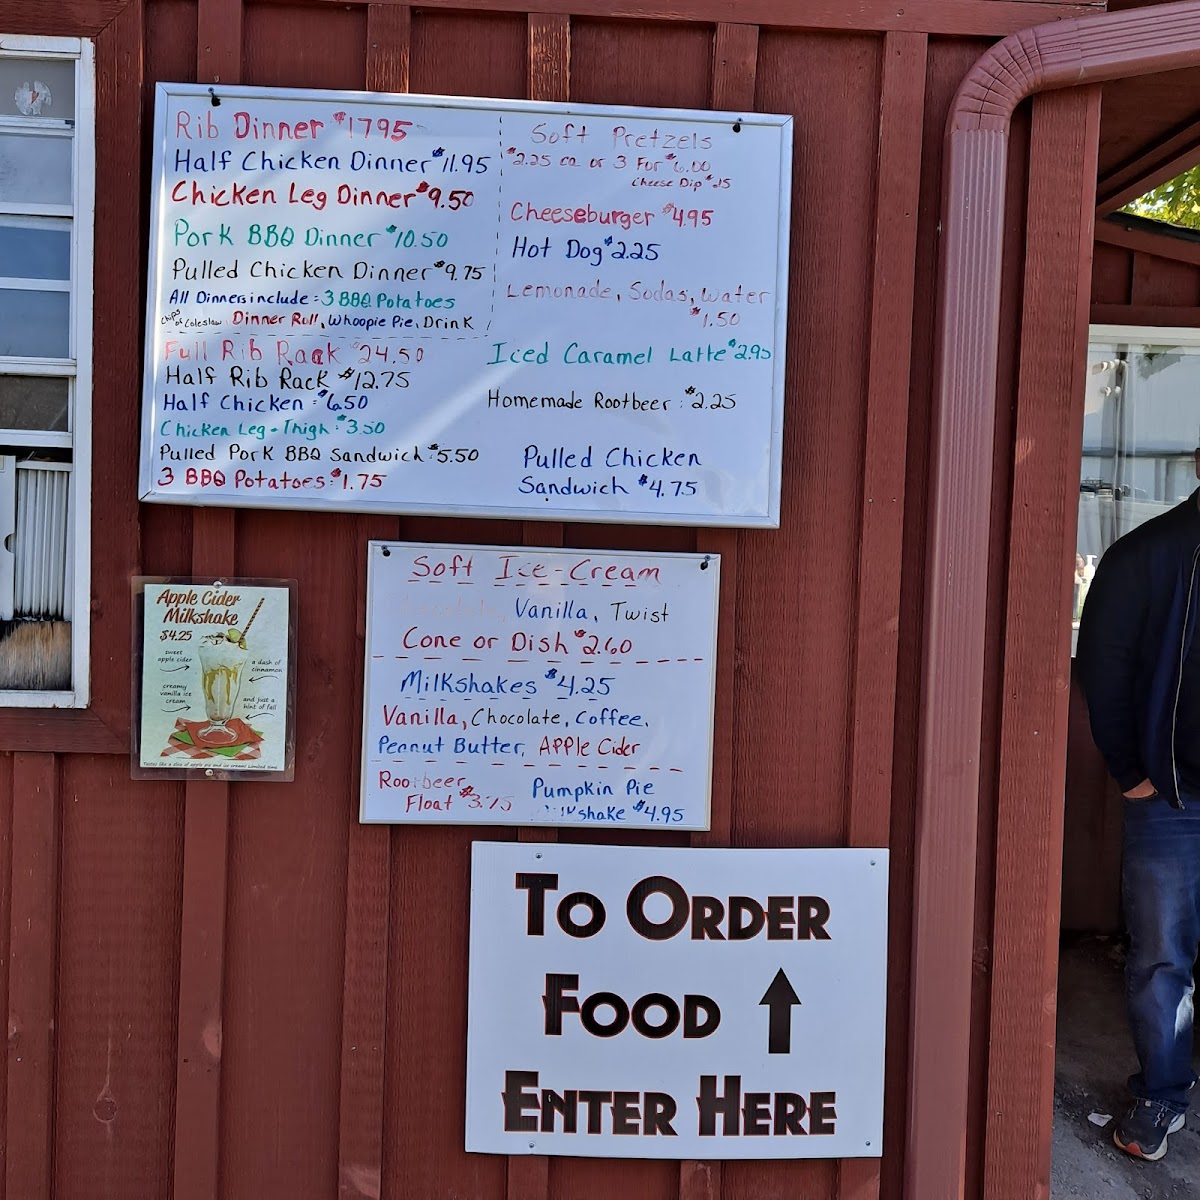 Rib Dinner $1795
Half Chicken Dinner $11.95
Chicken Leg Dinner $9.50
Pork BBQ Dinner $10.50
Pulled Chicken Dinner $9.75
All Dinners include: 3 BBQ Potatoes
Chips or Coleslaw, Dinner Roll, Whoopie Pie, Drink
Full Rib Rack $24.50
Half Rib Rack $12.75
Half Chicken = $6.50
Chicken Leg-Thigh: $3.50
Pulled Pork BBQ Sandwich: $5.50
3 BBQ Potatoes: $1.75
Soft Pretzels
$2.25 ea or 3 For $6.00
Cheese Dip
Cheeseburger $4.95
Hot Dog $2.25
Lemonade, Sodas, Water
$1.50
Iced Caramel Latte $2.95
Homemade Rootbeer: $2.25
Pulled Chicken
Sandwich $4.75
Apple Cider
Milkshake
$4.25
sweet
apple cider
a dash of
cinnamon
creamy
vanilla ice
cream
and just a
hint of fall
Tastes like a slice of apple pie and ice cream! Limited time
Soft Ice-Cream
Vanilla, Twist
Cone or Dish $2.60
Milkshakes $4.25
Vanilla, Chocolate, Coffee,
Peanut Butter, Apple Cider
Rootbeer
Float $3.75
Pumpkin Pie
Milkshake $4.95
To Order
Food ↑
Enter Here